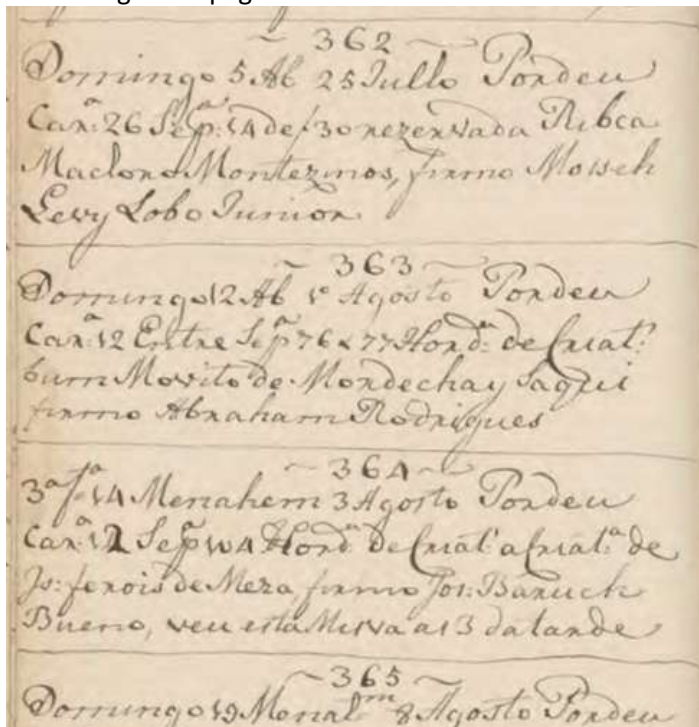 ~ 362 ~
Domingo 5 Ab 25 Jullo Pordeu
Car.ª 26 Sepª: 14 de f 30 rezervada Ribca
Machoro Montezinos, firmo Moiseh
Levy Lobo Junior
~ 363 ~
Domingo 12 Ab 1º Agosto Pordeu
Car.ª 12 Entre Sepª 76 & 77 Hordª de Criatª
hum Movito de Mordechay Saqui
firmo Abraham Rodrigues
~ 364 ~
3ª fª 14 Menahem 3 Agosto Pordeu
Car.ª 12 Sepª 104 Hordª de Criatª a Criatª de
Js: de Meza firmo Jos: Baruch
Bueno, veu esta Misva as 3 da tarde
~ 365 ~
Domingo 19 Menalm 8 Agosto Pordeu